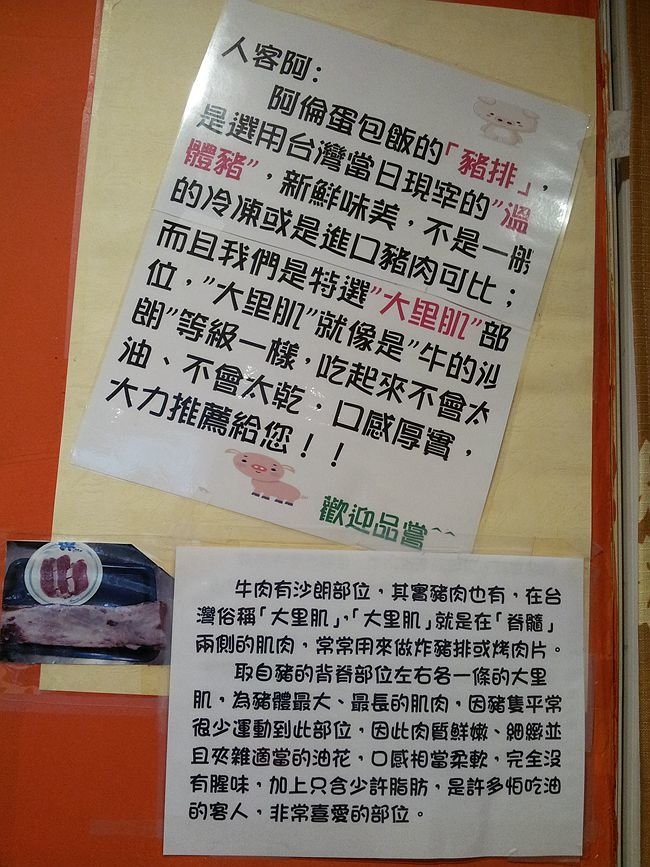 人客阿：
阿倫蛋包飯的「豬排」，
是選用台灣當日現宰的"溫
體豬"，新鮮味美，不是一般
的冷凍或是進口豬肉可比；
而且我們是特選"大里肌"部
位，"大里肌"就像是"牛的沙
朗"等級一樣，吃起來不會太
油、不會太乾，口感厚實，
大力推薦給您！！
歡迎品嘗^^
牛肉有沙朗部位，其實豬肉也有，在台
灣俗稱「大里肌」，「大里肌」就是在「脊髓」
兩側的肌肉，常常用來做炸豬排或烤肉片。
取自豬的背脊部位左右各一條的大里
肌，為豬體最大、最長的肌肉，因豬隻平常
很少運動到此部位，因此肉質鮮嫩、細緻並
且夾雜適當的油花，口感相當柔軟，完全沒
有腥味，加上只含少許脂肪，是許多怕吃油
的客人，非常喜愛的部位。